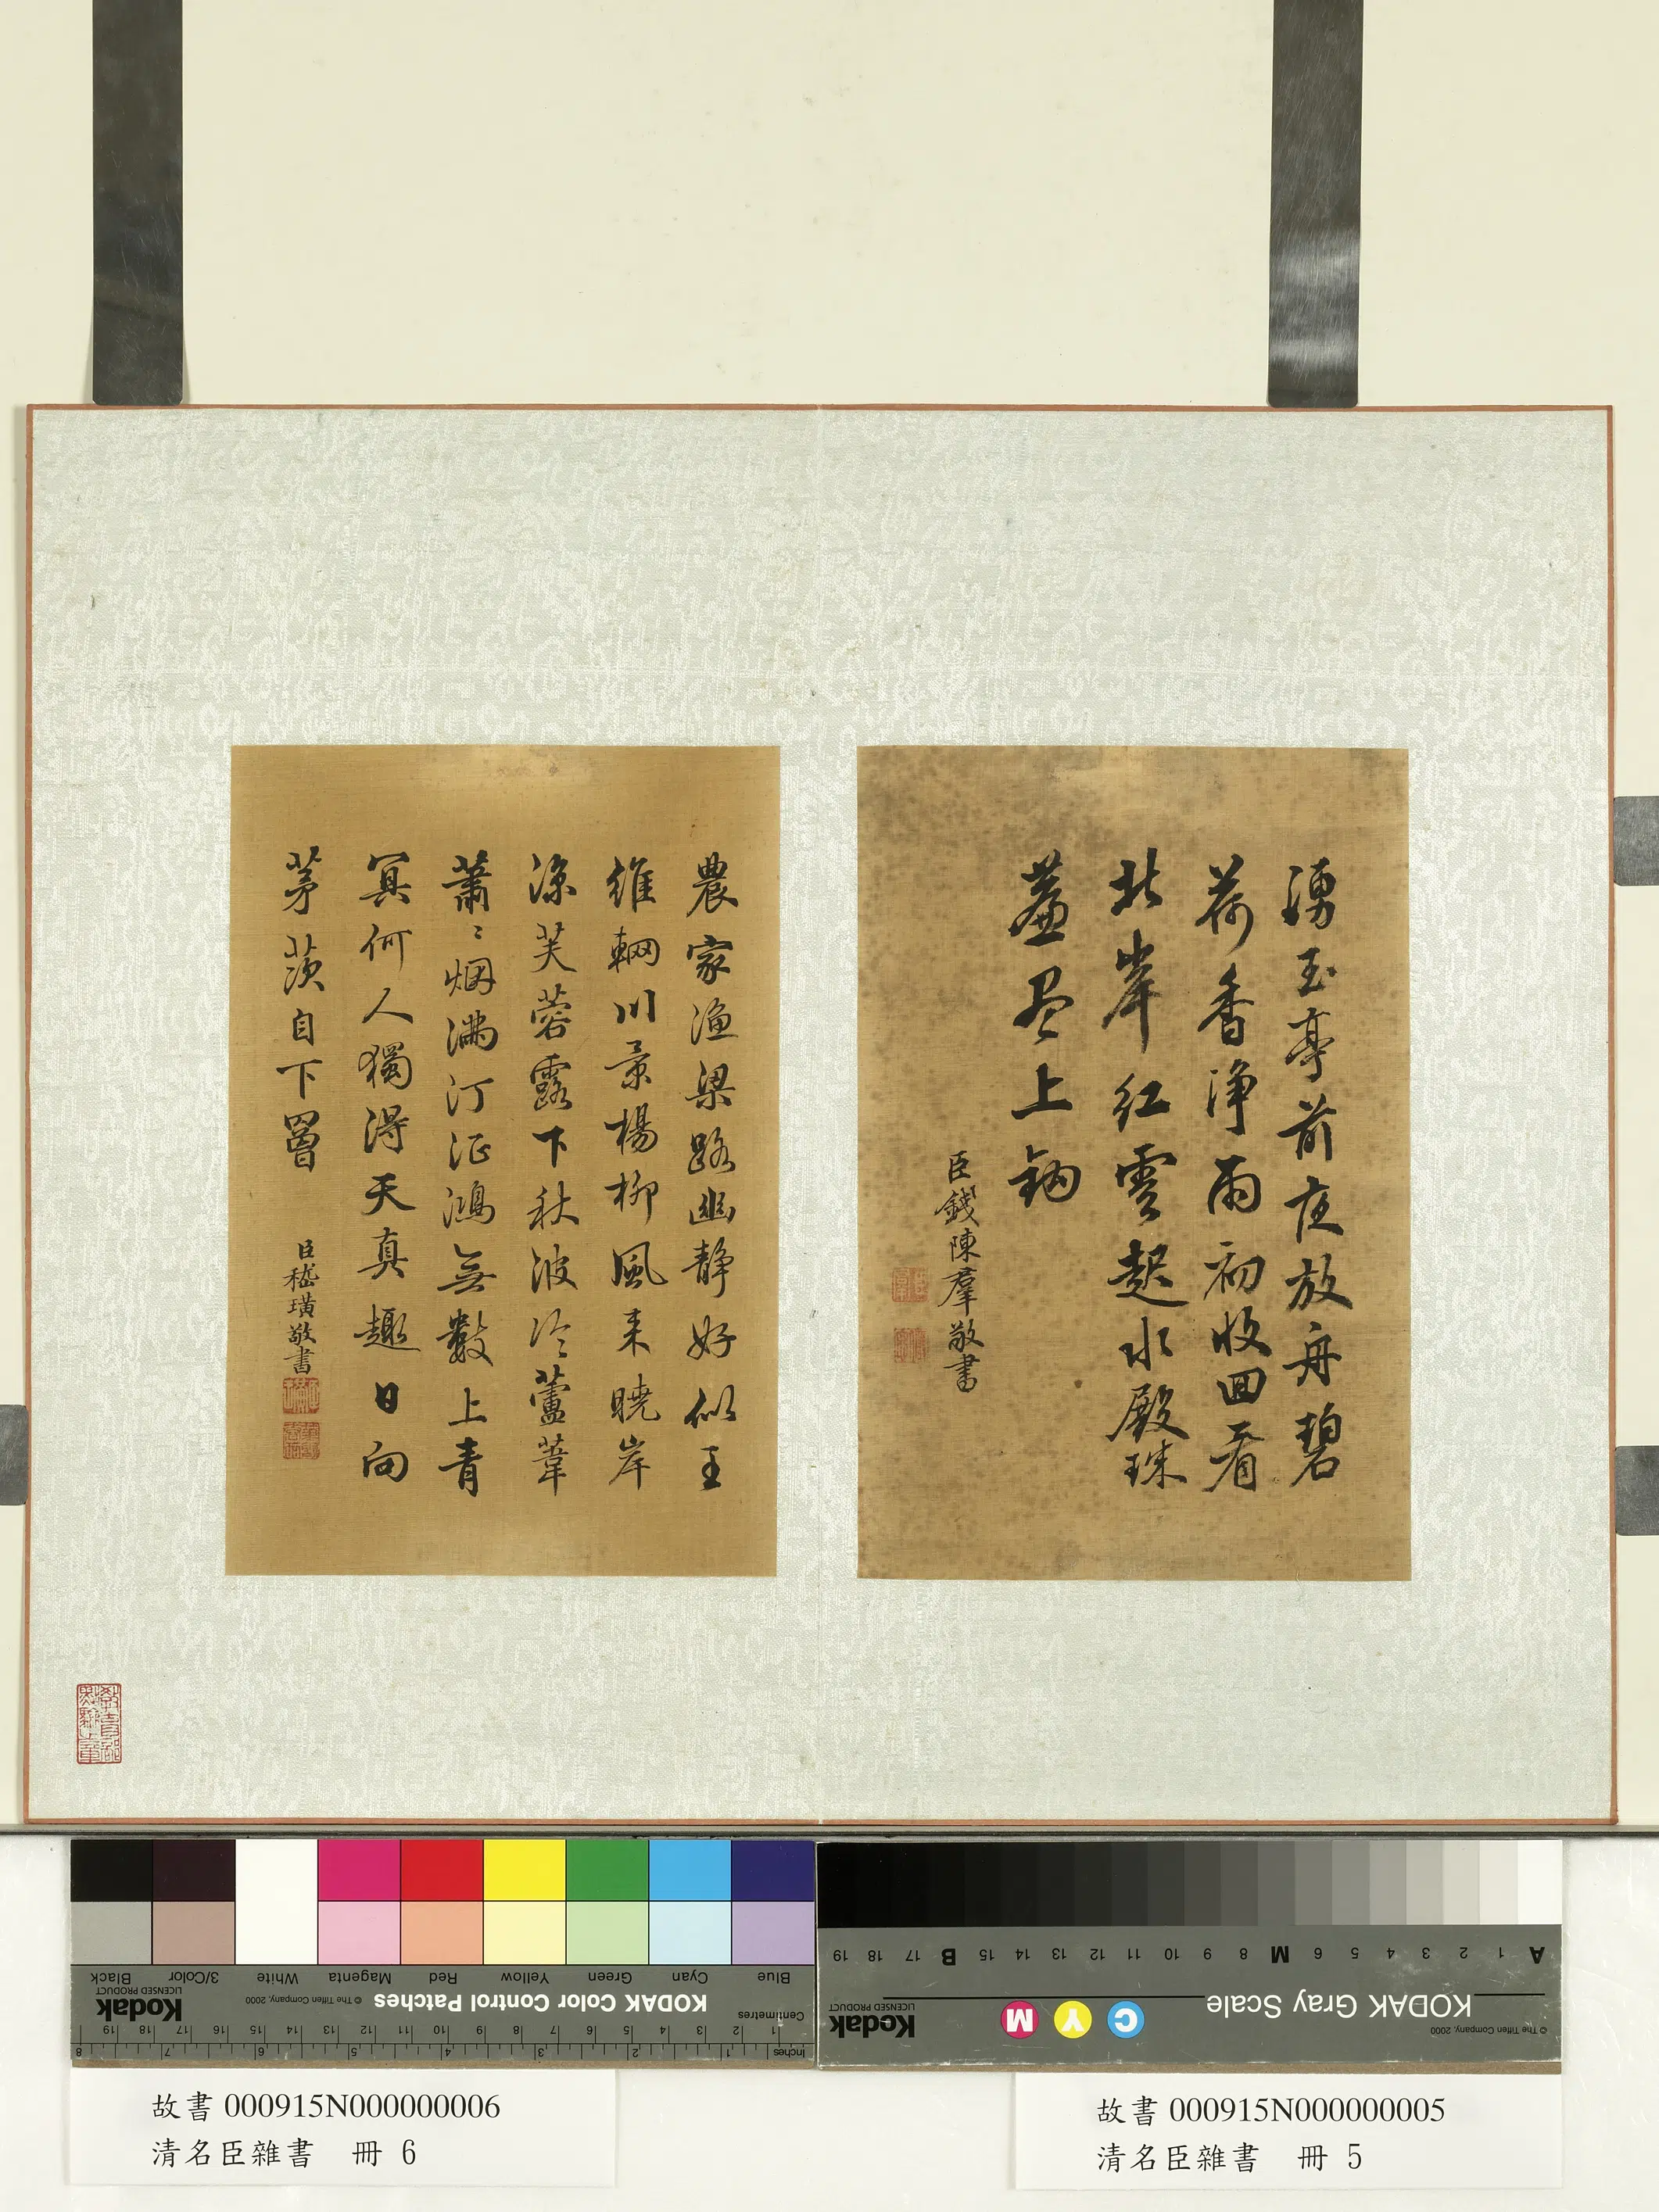 湧玉亭前夜放舟碧
荷香淨雨初收回看
北岸紅雲起水殿珠
簾盡上鉤
臣錢陳羣敬書
農家漁梁路幽靜好似王
維輞川景楊柳風來曉岸
涼芙蓉露下秋波冷蘆葦
蕭〻烟滿汀征鴻無數上青
冥何人獨得天真趣日向
茅茨自下罾
臣嵇璜敬書
Blue Cyan Green Yellow Red Magenta White 3/Color Black
KODAK Color Control Patches
© The Tiffen Company, 2000
Kodak
LICENSED PRODUCT
Centimetres
1 2 3 4 5 6 7 8 9 10 11 12 13 14 15 16 17 18 19
Inches
1 2 3 4 5 6 7 8
A 1 2 3 4 5 6 M 8 9 10 11 12 13 14 15 B 17 18 19
KODAK Gray Scale
C Y M
Kodak
LICENSED PRODUCT
© The Tiffen Company, 2000
故書 000915N000000006
清名臣雜書 冊 6
故書 000915N000000005
清名臣雜書 冊 5